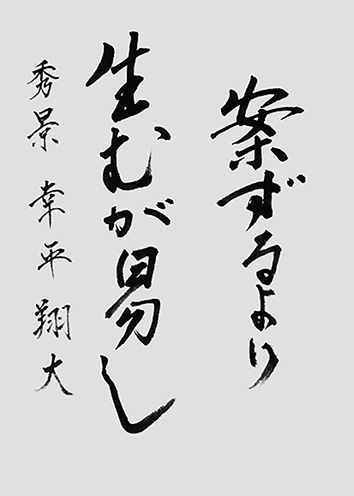 案ずるより
生むが易し
秀景 幸平 翔大